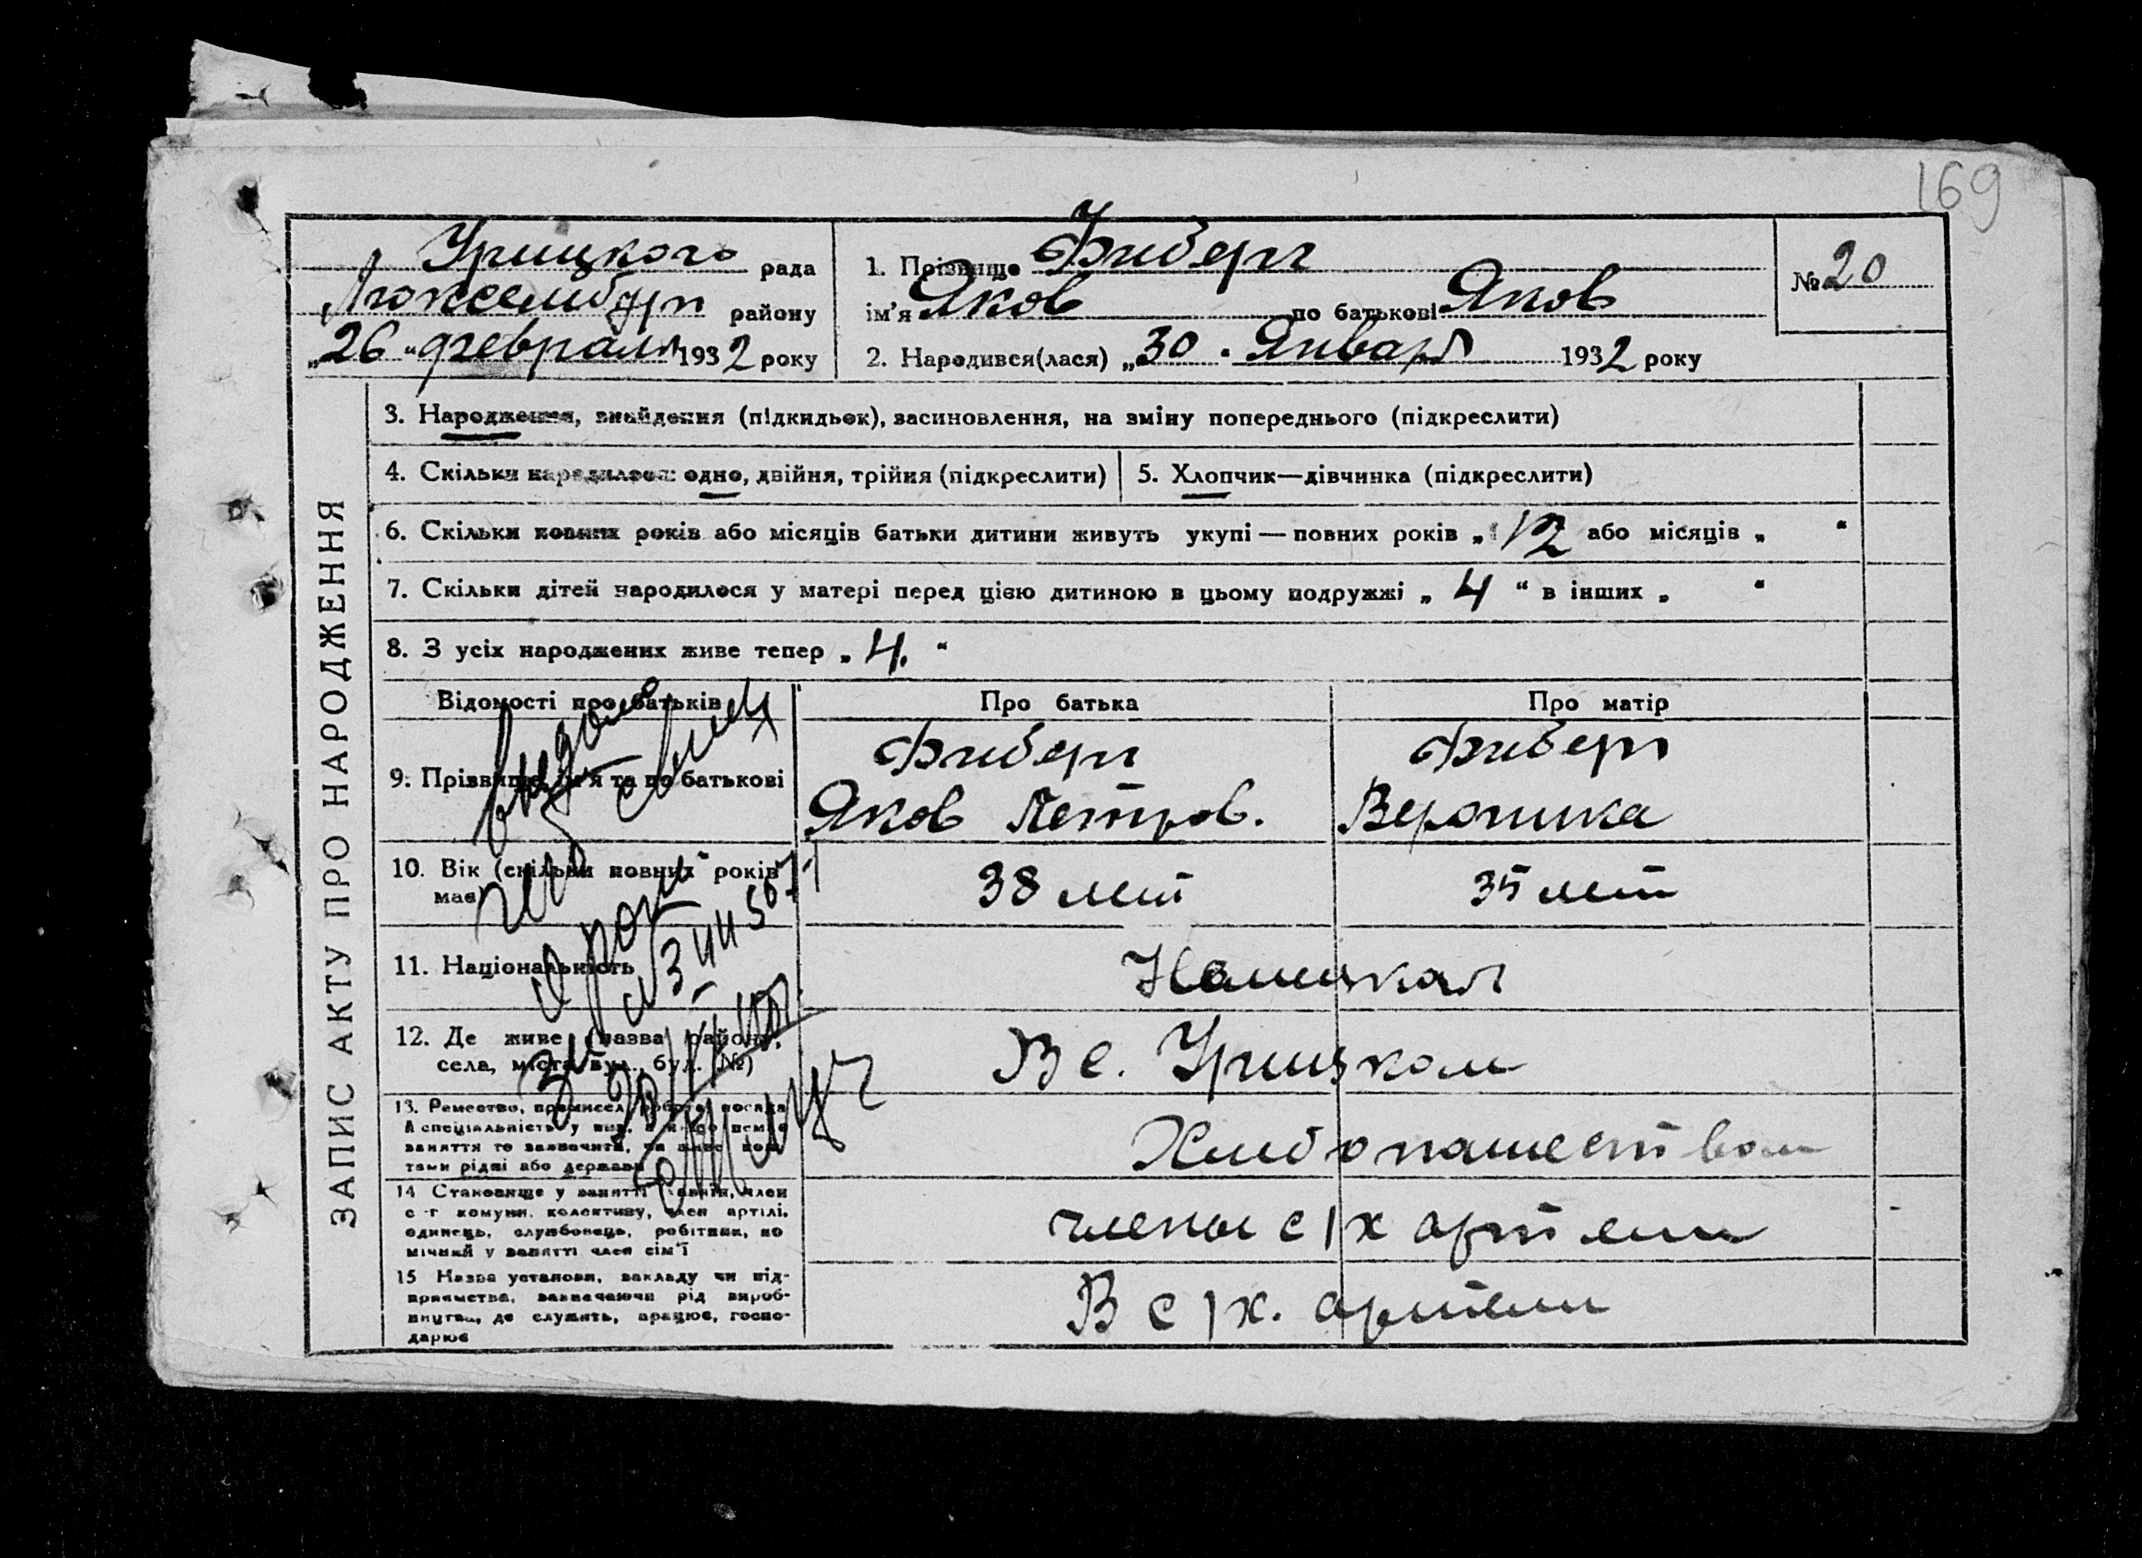 169
Урицкого рада
Люксембург району
„26 " февраля 1932 року
1. Прізвище Фиберг
ім'я Яков по батькові Яков
2. Народився(лася) „30 " Января 1932 року
№ 20
ЗАПИС АКТУ ПРО НАРОДЖЕННЯ
3. Народження, знайдення (підкидьок), засиновлення, на зміну попереднього (підкреслити)
4. Скільки народилося: одно, двійня, трійня (підкреслити)
5. Хлопчик—дівчинка (підкреслити)
6. Скільки повних років або місяців батьки дитини живуть укупі — повних років „ 12 або місяців „ "
7. Скільки дітей народилося у матері перед цією дитиною в цьому подружжі „ 4 " в інших „ "
8. З усіх народжених живе тепер „ 4. "
Відомості про батьків
Про батька
Про матір
9. Прізвище, ім'я та по батькові
Фиберг
Яков Петров.
Фиберг
Вероника
10. Вік (скільки повних років
має)
38 лет
35 лет
11. Національність
Немецкая
12. Де живе (назва району,
села, міста, вул., буд. №)
В с. Урицком
13. Ремество, промисел, робота, посада
й спеціяльність у них, а якщо немає
заняття то зазначити, чи живе кош-
тами рідні або держави
Хлебопашеством
14 Становище у занятті хазяїн, член
с-г комуни, колективу, член артілі,
одинець, службовець, робітник, по
мічний у занятті член сім'ї
члены с/х артели
15 Назва установи, закладу чи під-
приємства, зазначаючи рід вироб-
ництва, де служить, працює, госпо-
дарює
В с/х. артели